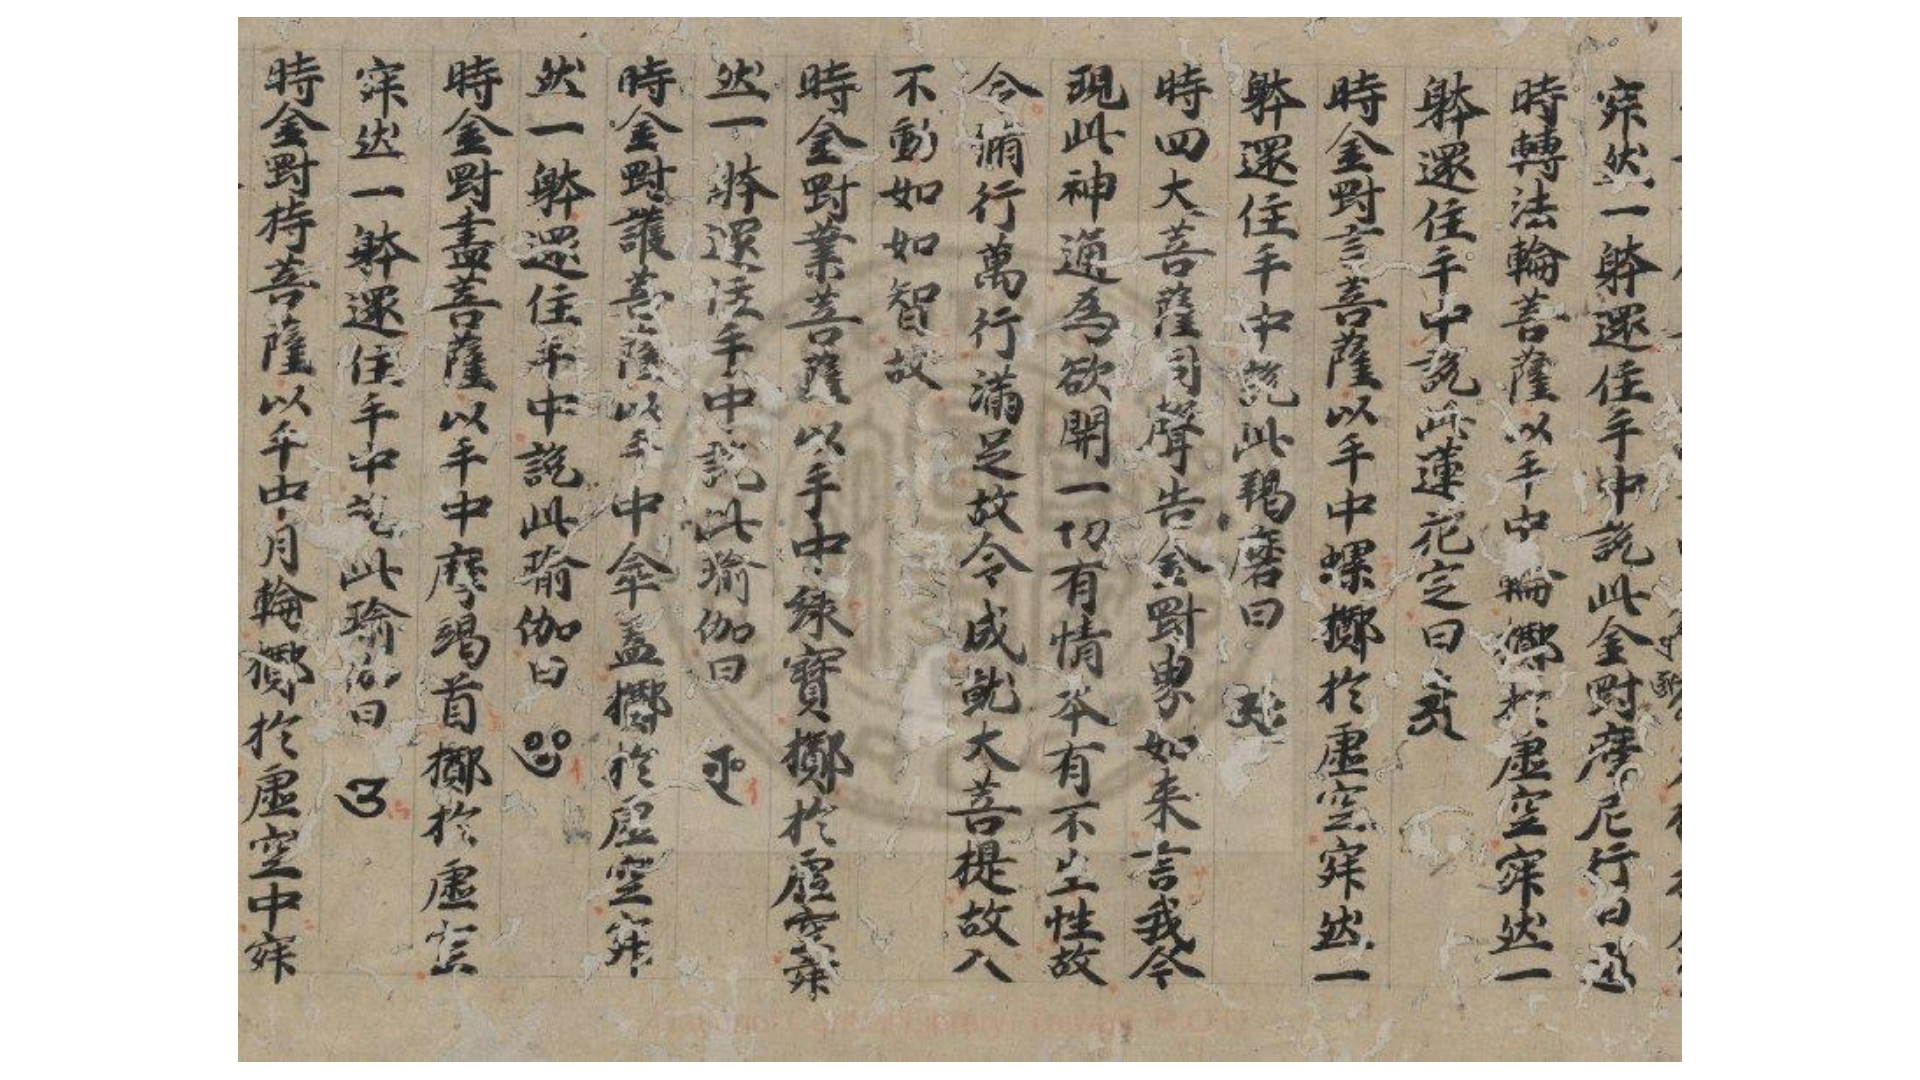 寂然一躰還住手中說此金對摩尼行曰
時轉法輪菩薩以手中輪擲於虛空寂然一
躰還住手中說此蓮花定曰
時金對言菩薩以手中螺擲於虛空寂然一
躰還住手中說此羯磨曰
時四大菩薩同聲告金對界如来言我今
現此神通為欲開一切有情本有不生性故
今滿行萬行滿足故令成就大菩提故入
不動如如智故
時金對業菩薩以手中綵寶擲於虛空寂
然一躰還住手中說此瑜伽曰
時金對護菩薩以手中傘盖擲於虛空寂
然一躰還住手中說此瑜伽曰
時金對盡菩薩以手中摩竭首擲於虛空
寂然一躰還住手中說此瑜伽曰
時金對持菩薩以手中月輪擲於虛空中寂